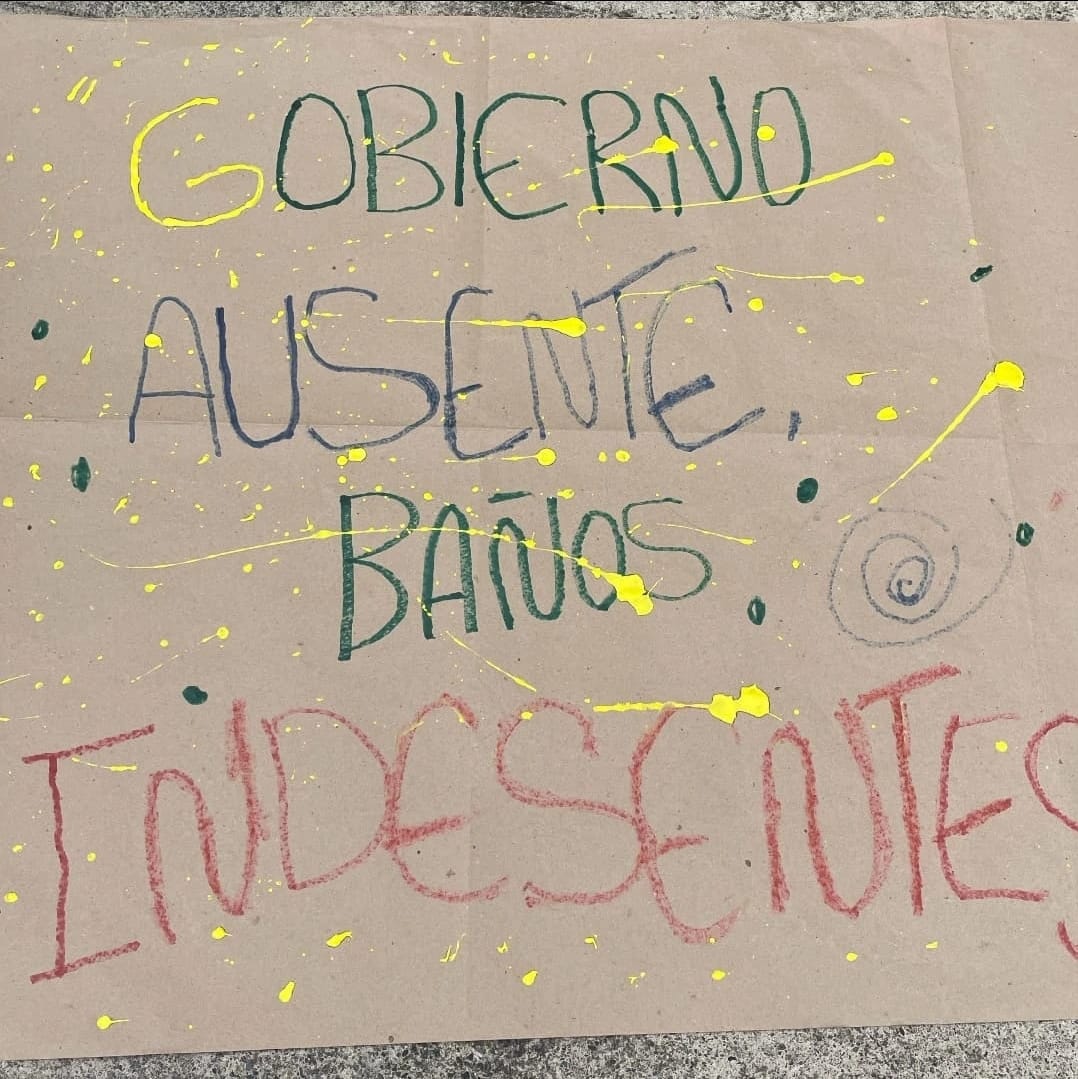 GOBIERNO
AUSENTE,
BAÑOS
INDESENTES